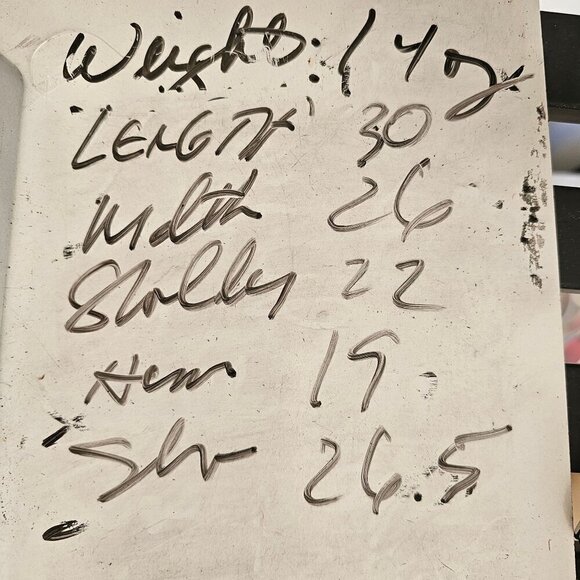 Weight: 14oz
LENGTH 30
Width 26
Sholder 22
Hem 19
Slv 26.5